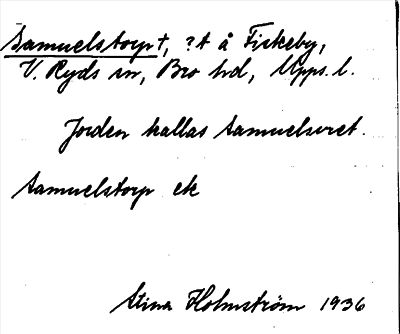 Samuelstorp †, ?t å Fiskeby,
V. Ryds sn, Bro hd, Upps. l.
Jorden kallas Samuelsvret.
Samuelstorp ek
Stina Holmström 1936